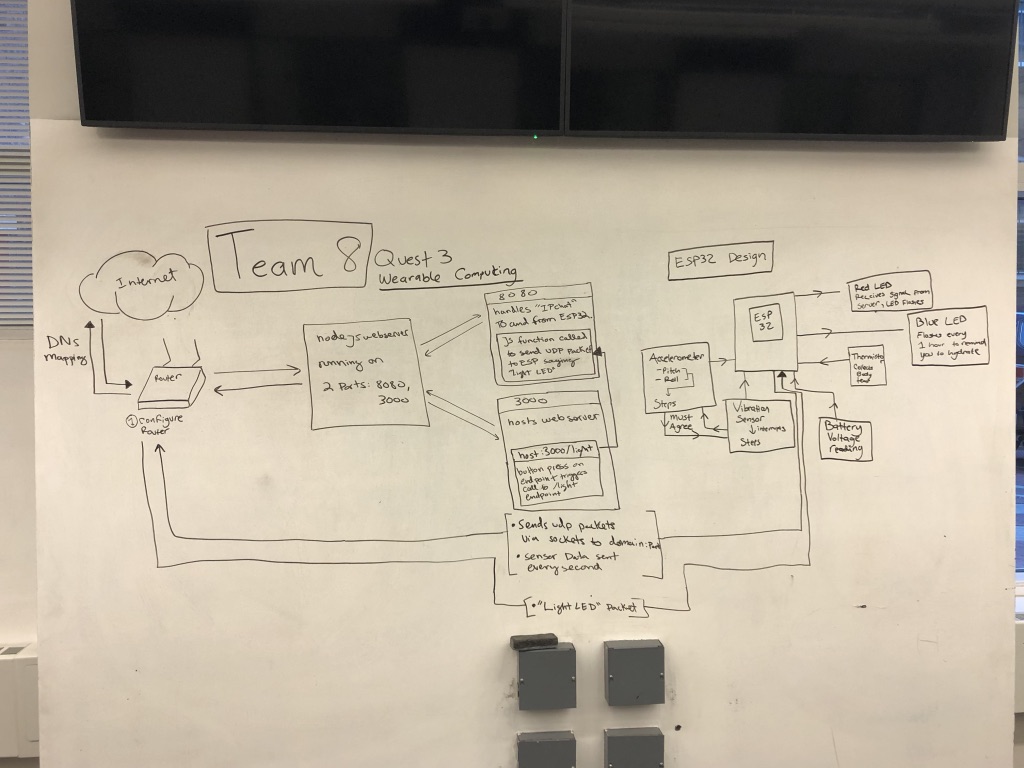 Team 8
Quest 3
Wearable Computing
Internet
DNS
Mapping
Router
① Configure
Router
nodejs webserver
running on
2 Ports: 8080,
3000
8080
handles "IPchat"
To and from ESP32
JS function called
to send UDP packet
to ESP saying
"light LED"
3000
hosts web server
host:3000/light
button press on
endpoint triggers
call to /light
endpoint
• Sends udp packets
via sockets to domain:Port
• sensor Data sent
every second
• "Light LED" Packet
ESP32 Design
ESP
32
Red LED
Receives signal from
server, LED flashes
Blue LED
Flashes every
1 hour to remind
you to hydrate
Thermisto
Collects
Body
temp
Accelerometer
- Pitch
- Roll
Steps
Must
Agree
Vibration
Sensor
interrupts
Steps
Battery
Voltage
reading